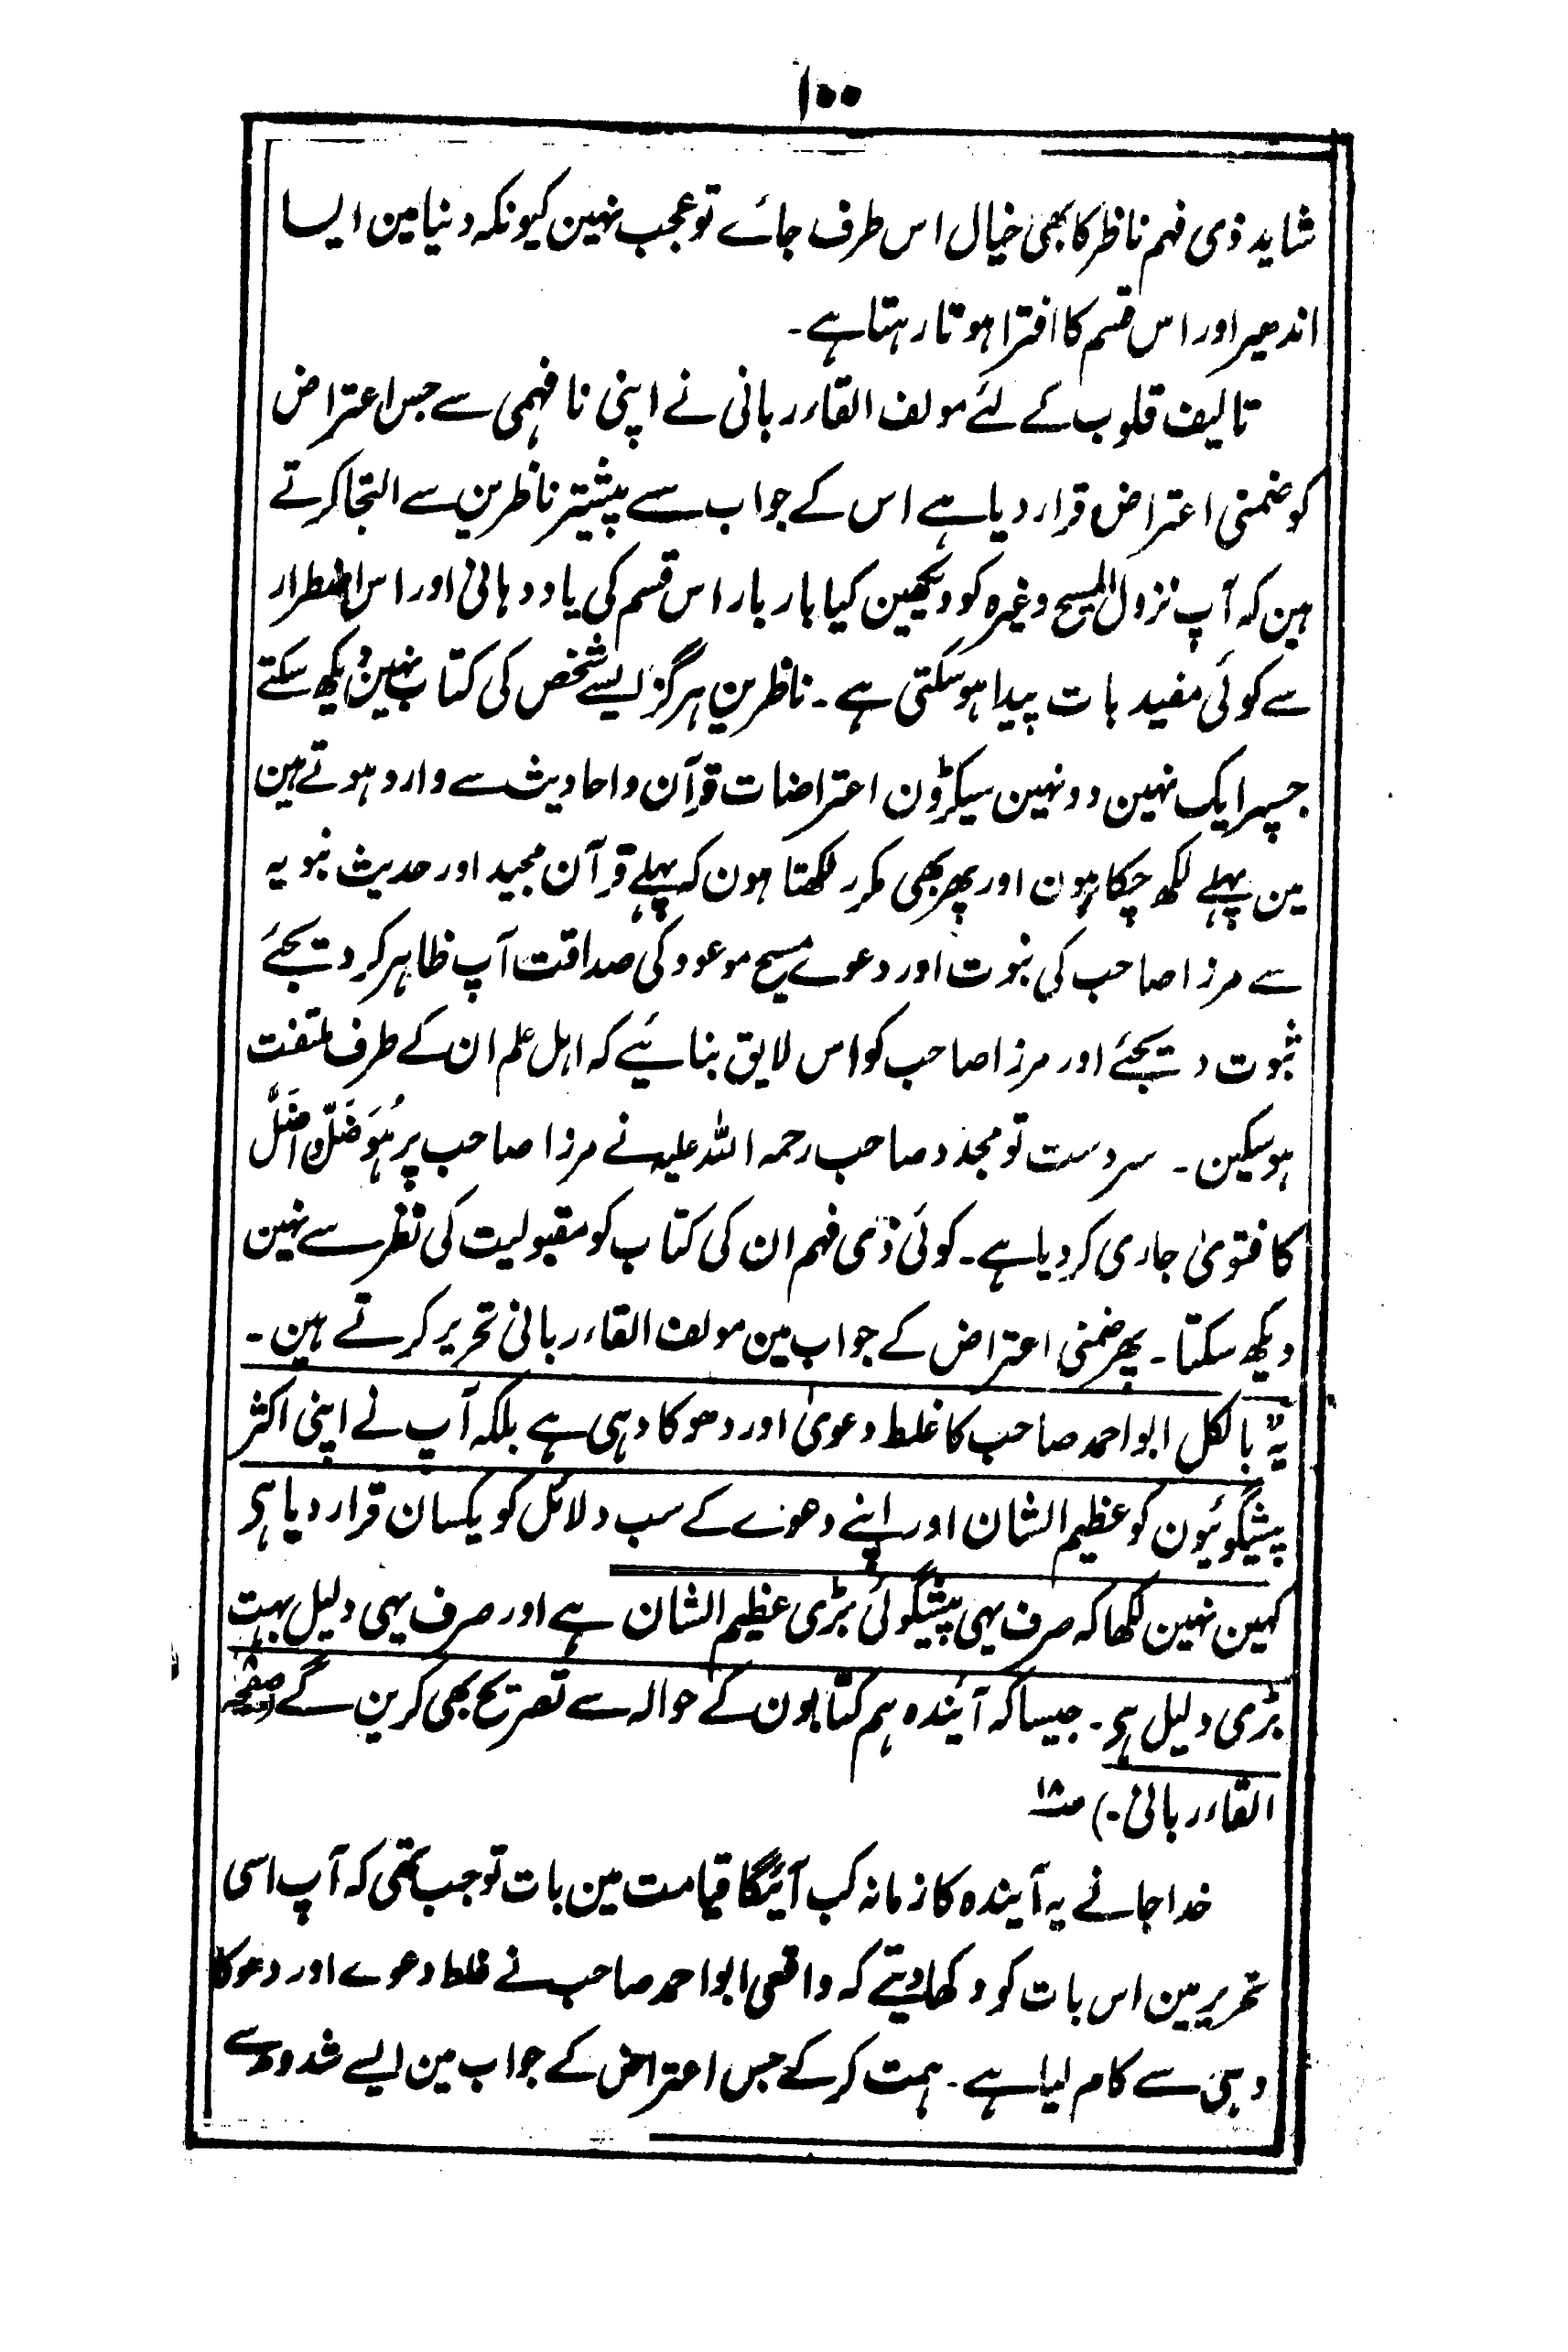 ۱۰۰
شاید ذی فہم ناظر کا بھی خیال اس طرف جائے تو عجب نہین کیونکہ دنیا مین ایسا
اندھیر اور اس قسم کا افترا ہوتا رہتا ہے۔
تالیف قلوب کے لئے مولف القاء ربانی نے اپنی نا فہمی سے جس اعتراض
کو ضمنی اعتراض قرار دیا ہے اس کے جواب سے پیشتر ناظرین سے التجا کرتے
ہین کہ آپ نزول المسیح وغیرہ کو دیکھین کیا بار بار اس قسم کی یاد دہانی اور اس اضطرار
سے کوئی مفید بات پیدا ہو سکتی ہے۔ ناظرین ہرگز ایسے شخص کی کتاب نہین دیکھ سکتے
جسپر ایک نہین دو نہین سیکڑون اعتراضات قرآن و احادیث سے وارد ہوتے ہین
مین پہلے لکھ چکا ہون اور پھر بھی مکرر لکھتا ہون کہ پہلے قرآن مجید اور حدیث نبویہ
سے مرزا صاحب کی نبوت اور دعوے مسیح موعود کی صداقت آپ ظاہر کر دیجئے
ثبوت دیجئے اور مرزا صاحب کو اس لایق بنائیے کہ اہل علم ان کے طرف ملتفت
ہو سکین۔ سردست تو مجدد صاحب رحمہ اللہ علیہ نے مرزا صاحب پر ہُوَ ضَلَّ و اَضَلَّ
کا فتویٰ جاری کر دیا ہے۔ کوئی ذی فہم ان کی کتاب کو مقبولیت کی نظر سے نہین
دیکھ سکتا۔ پھر ضمنی اعتراض کے جواب مین مولف القاء ربانی تحریر کرتے ہین۔
یہ بالکل ابو احمد صاحب کا غلط دعویٰ اور دھوکا دہی ہے بلکہ آپ نے اپنی اکثر
پیشگوئیون کو عظیم الشان اور اپنے دعوے کے سب دلائل کو یکسان قرار دیا ہی
کہین نہین لکھا کہ صرف یہی پیشگوئی بڑی عظیم الشان ہے اور صرف یہی دلیل بہت
بڑی دلیل ہی۔ جیسا کہ آیندہ ہم کتابون کے حوالہ سے تصریح بھی کرین گے (صفحہ ۱۸
القاء ربانی۔) صـ۱۸
خدا جانے یہ آیندہ کا زمانہ کب آئیگا قیامت مین بات تو جب تھی کہ آپ اسی
تحریر مین اس بات کو دکھا دیتے کہ واقعی ابو احمد صاحب نے غلط دعوے اور دھوکا
دہی سے کام لیا ہے۔ ہمت کر کے جس اعتراض کے جواب مین ایسے شد و مد سے